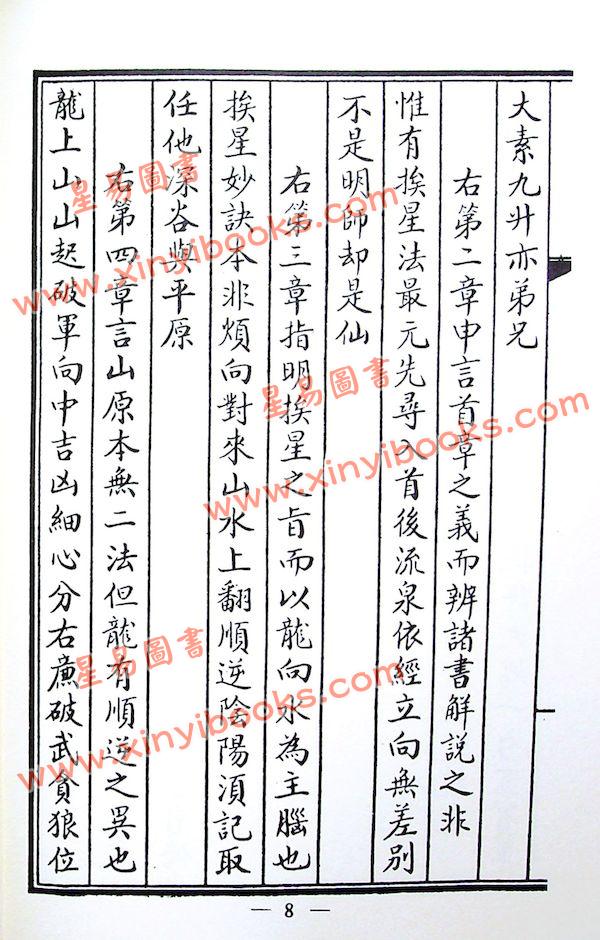 大素九升亦弟兄
右第二章申言首章之義而辨諸書解說之非
惟有挨星法最元先尋入首後流泉依經立向無差別
不是明師却是仙
右第三章指明挨星之旨而以龍向水為主腦也
挨星妙訣本非煩向對來山水上翻順逆陰陽須記取
任他深谷與平原
右第四章言山原本無二法但龍有順逆之異也
龍上山山起破軍向中吉凶細心分右廉破武貪狼位
星易圖書
www.xinyibooks.com
星易圖書
www.xinyibooks.com
星易圖書
www.xinyibooks.com
— 8 —